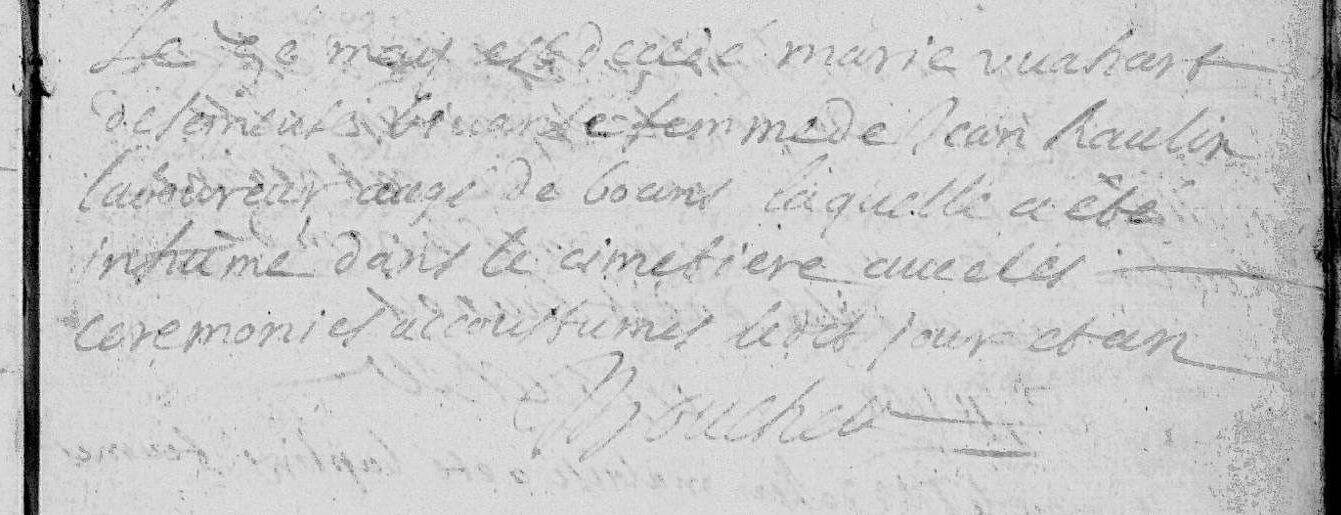 Le 7e may est decede marie vuahart
de son vivante femme de Jean Raulin
laboureur aagé de 60 ans laquelle a êté
inhumé dans le cimetiere avec les
ceremonies accoustumes ledit jour et an
Bouchet